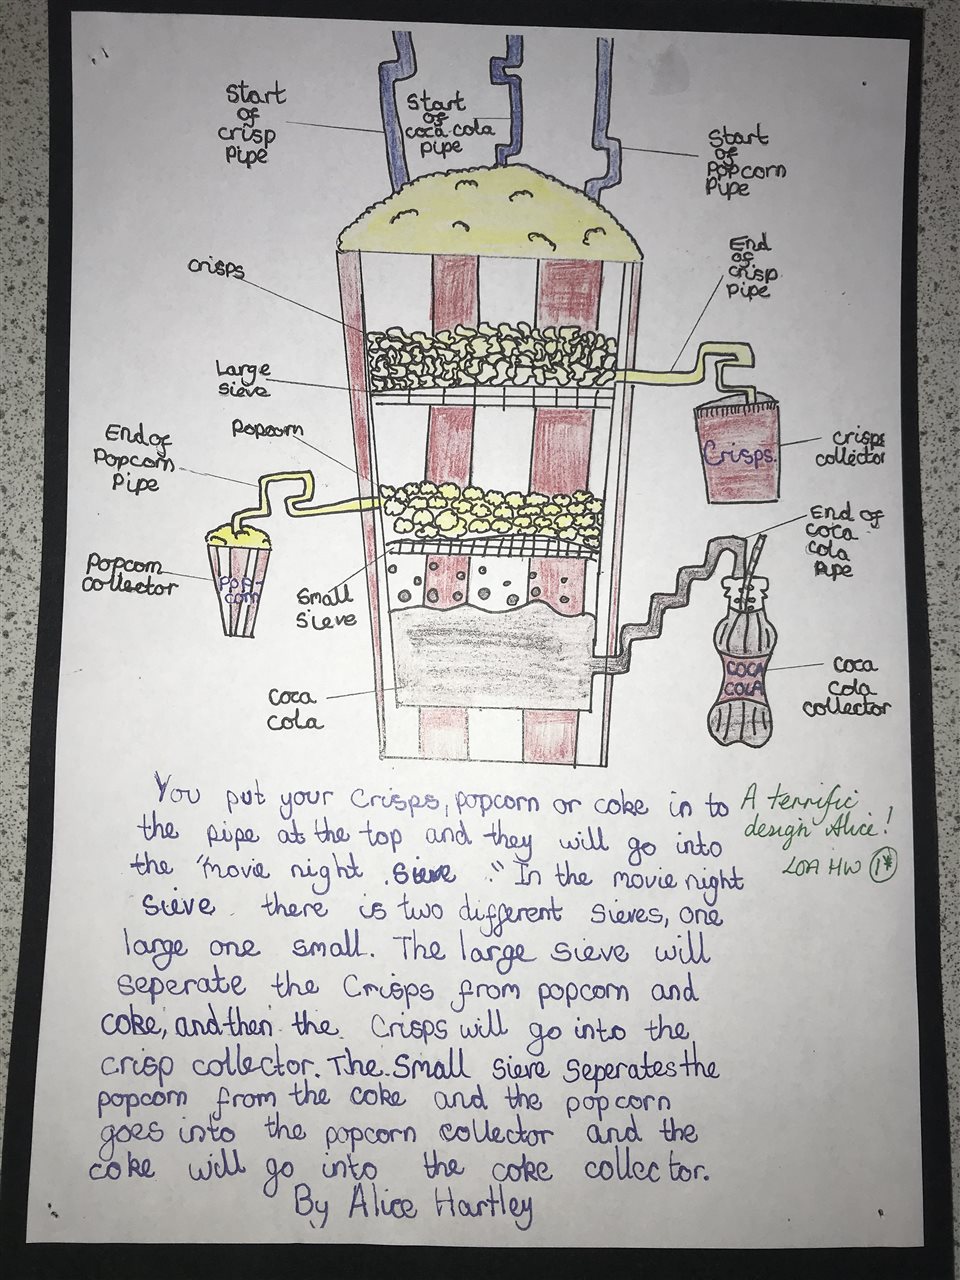 Start
of
crisp
pipe
Start
of
coca cola
pipe
Start
of
Popcorn
Pipe
End
of
crisp
pipe
crisps
Large
sieve
Popcorn
End of
Popcorn
Pipe
Crisps
crisps
collector
End of
coca
cola
Pipe
Popcorn
collector
POP-
corn
Small
sieve
Coca
cola
COCA
COLA
coca
cola
collector
You put your Crisps, popcorn or coke in to
the pipe at the top and they will go into
the "movie night sieve ." In the movie night
sieve there is two different sieves, one
large one small. The large sieve will
seperate the Crisps from popcorn and
coke, and then the Crisps will go into the
crisp collector. The Small sieve seperates the
popcorn from the coke and the popcorn
goes into the popcorn collector and the
coke will go into the coke collector.
By Alice Hartley
A terrific
design Alice!
LOA HW 1*